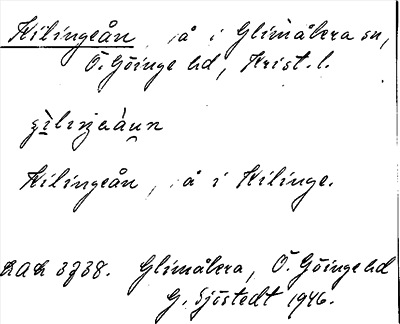 Kilingeån, å i Glimåkra sn,
Ö. Göinge hd, Krist. l.
Kilingeån, å i Kilinge.
LAL 3738. Glimåkra, Ö. Göinge hd
G. Sjöstedt 1946.